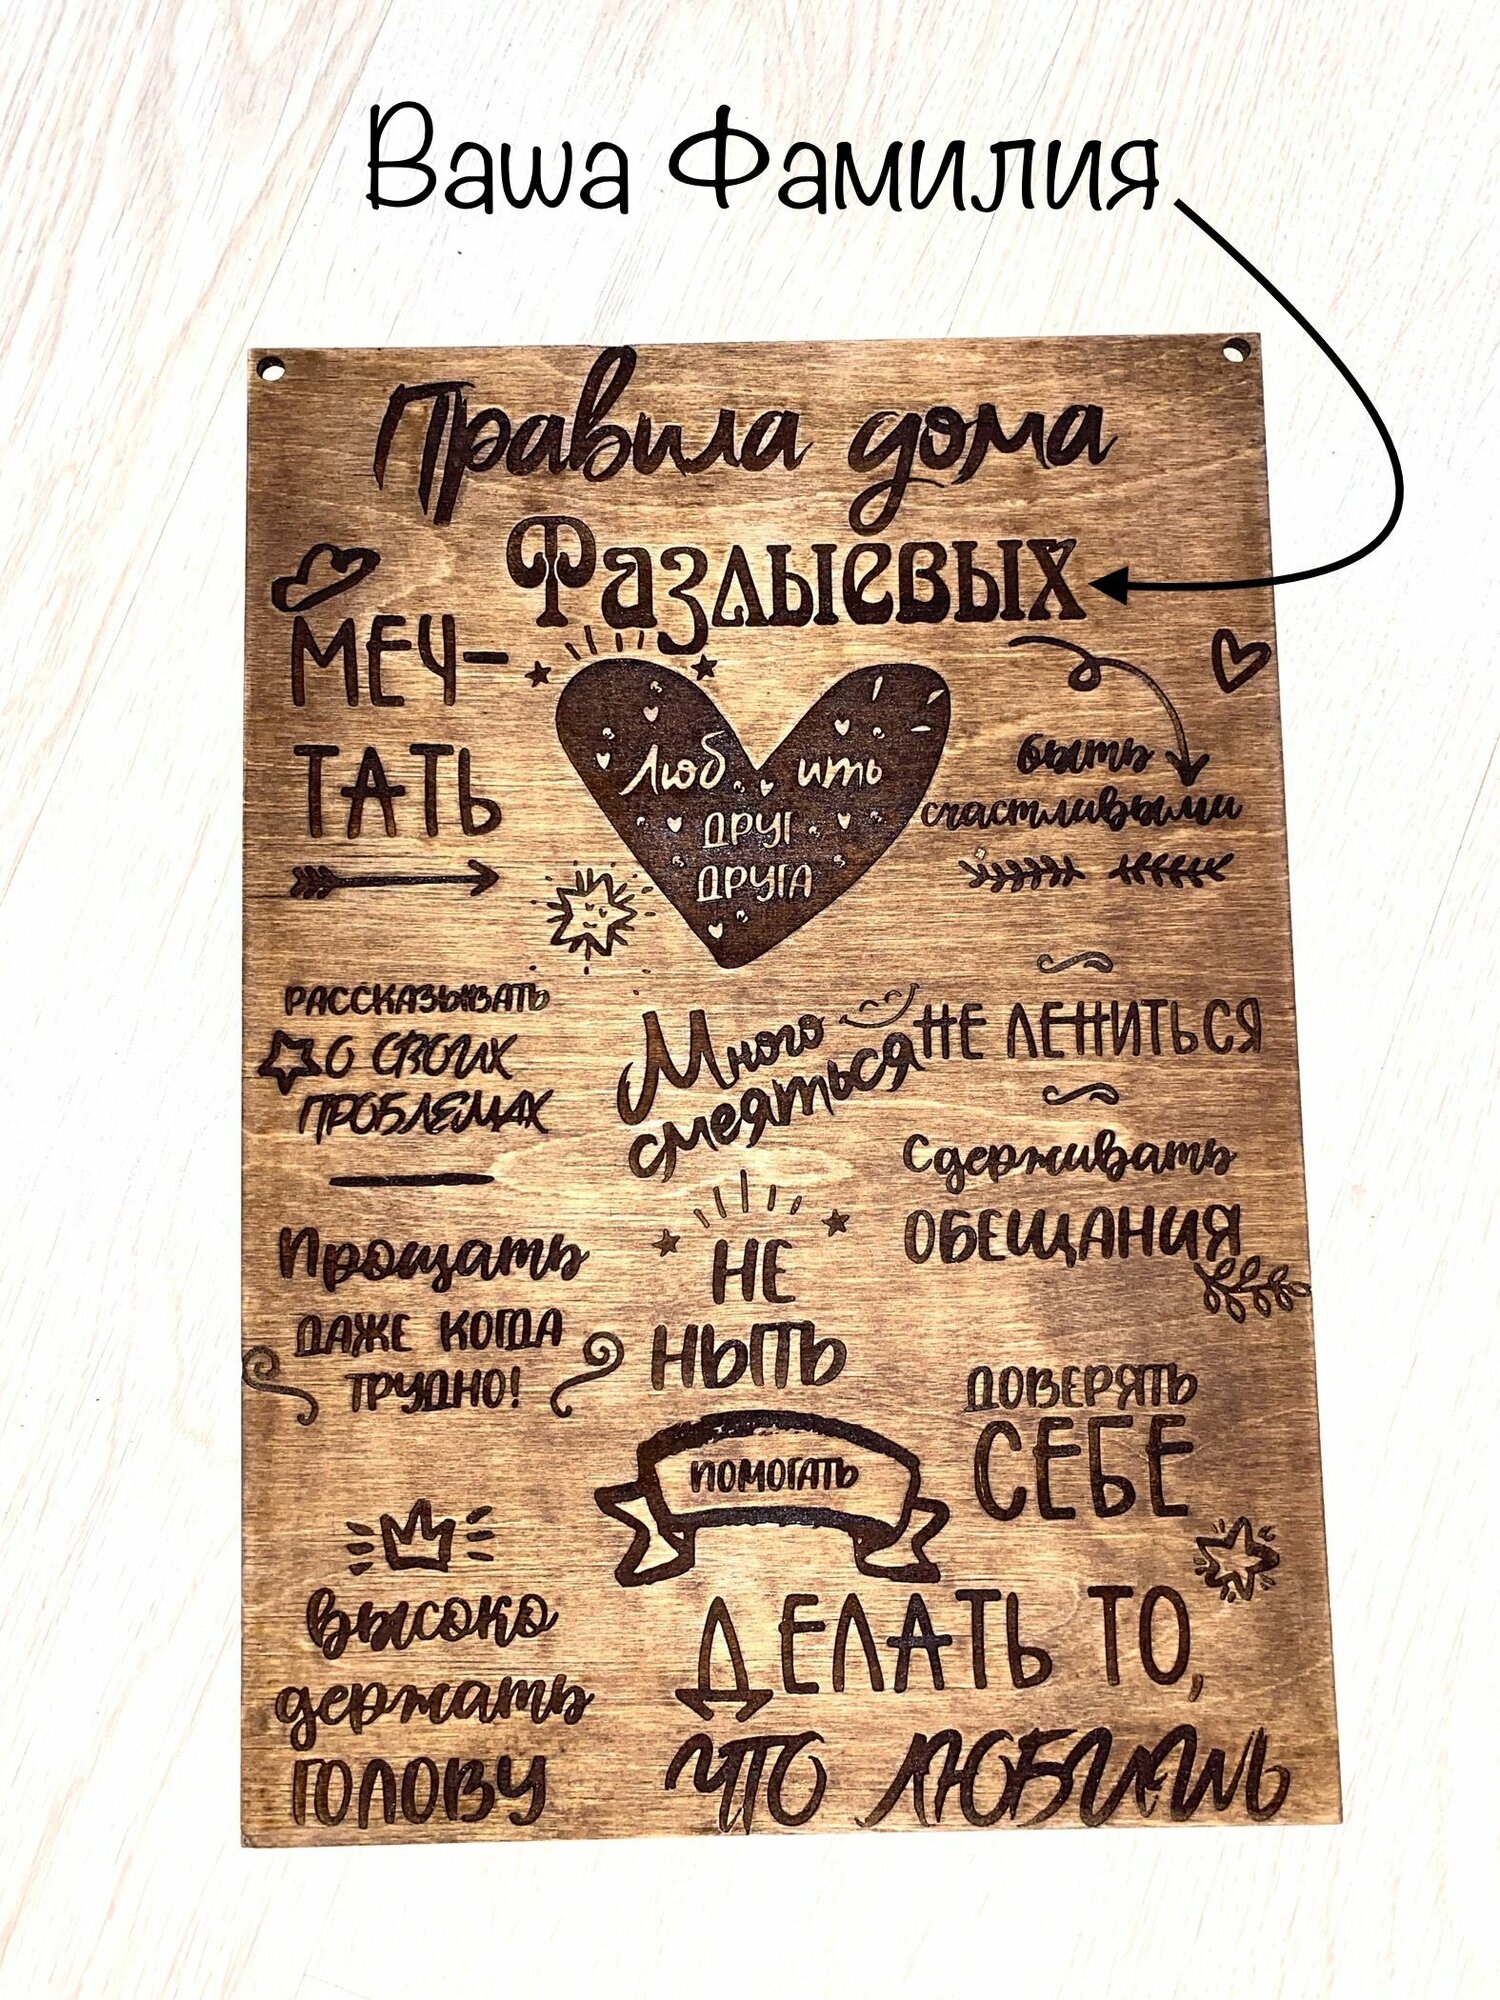 Ваша Фамилия
Правила дома
Фазлыевых
МЕЧ-
ТАТЬ
Люб ить
ДРУГ
ДРУГА
быть
счастливыми
РАССКАЗЫВАТЬ
О СВОИХ
ПРОБЛЕМАХ
Много
смеяться
НЕ ЛЕНИТЬСЯ
Сдерживать
ОБЕЩАНИЯ
Прощать
ДАЖЕ КОГДА
ТРУДНО!
НЕ
НЫТЬ
ПОМОГАТЬ
ДОВЕРЯТЬ
СЕБЕ
высоко
держать
ГОЛОВУ
ДЕЛАТЬ ТО,
ЧТО ЛЮБИШЬ